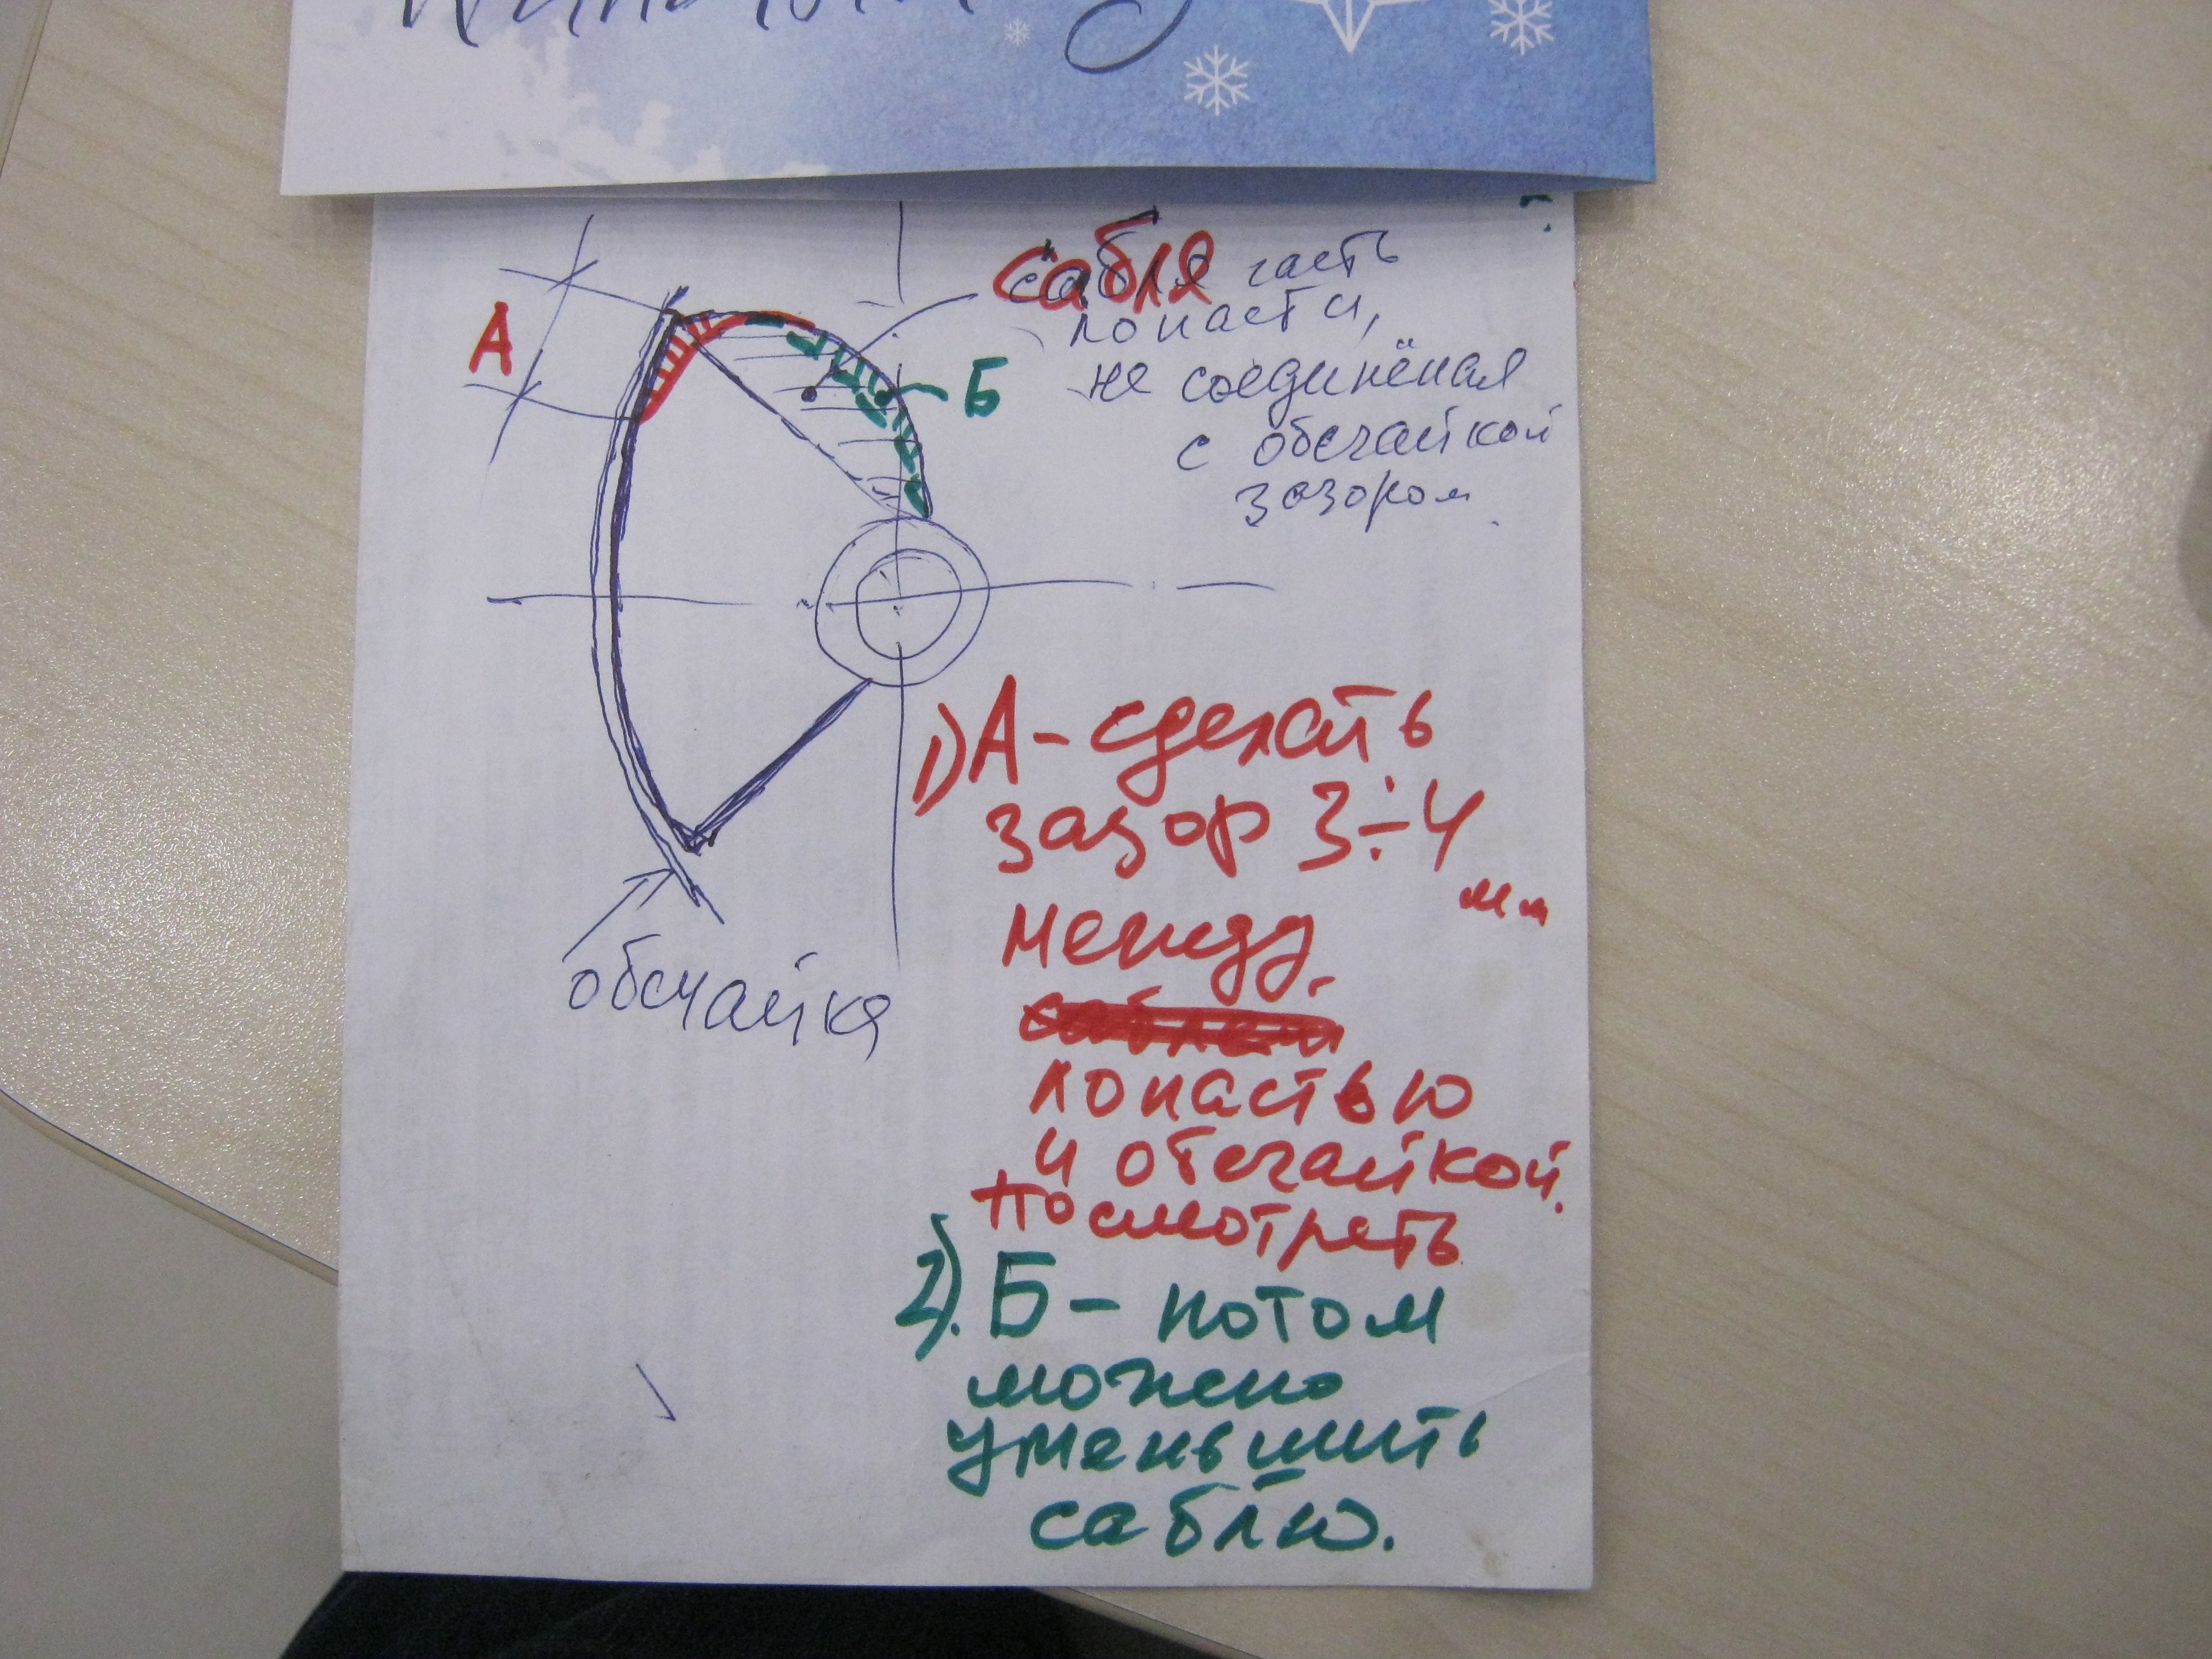 сабля часть
лопасти,
не соединёная
с обечайкой
зазором
А
Б
1) А - сделать
зазор 3÷4
мм
между
лопастью
и обечайкой.
посмотреть
2). Б - потом
можно
уменьшить
саблю.
обечайка